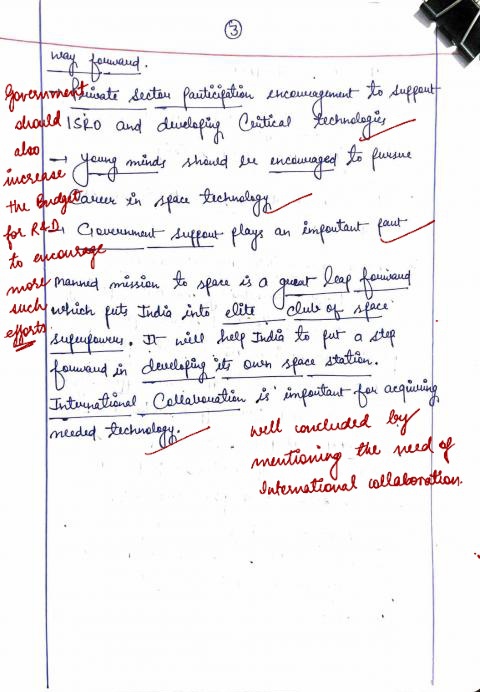 3
way forward.
Private Sector participation encouragement to support
ISRO and developing Critical technologies
→ young minds should be encouraged to pursue
career in space technology
→ Government support plays an important part
manned mission to space is a great leap forward
which puts India into elite club of space
superpowers. It will help India to put a step
forward in developing its own space station.
International Collaboration is important for acquiring
needed technology.
Government
should
also
increase
the Budget
for R&D
to encourage
more
such
efforts
well concluded by
mentioning the need of
International collaboration.